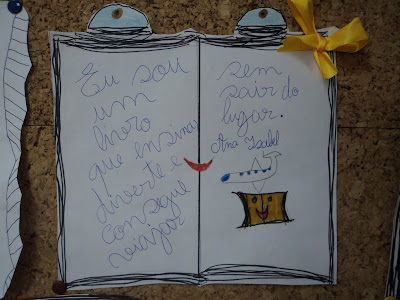 Eu sou
um
livro
que ensina
diverte e
consegue
viajar
sem
sair do
lugar.
Ana Isabel